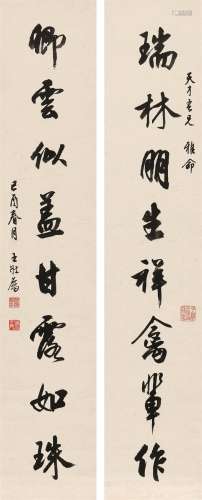 天才吾兄 雅命
瑞林朋生祥禽輩作
卿雲似蓋甘露如珠
己酉春月 王壯為